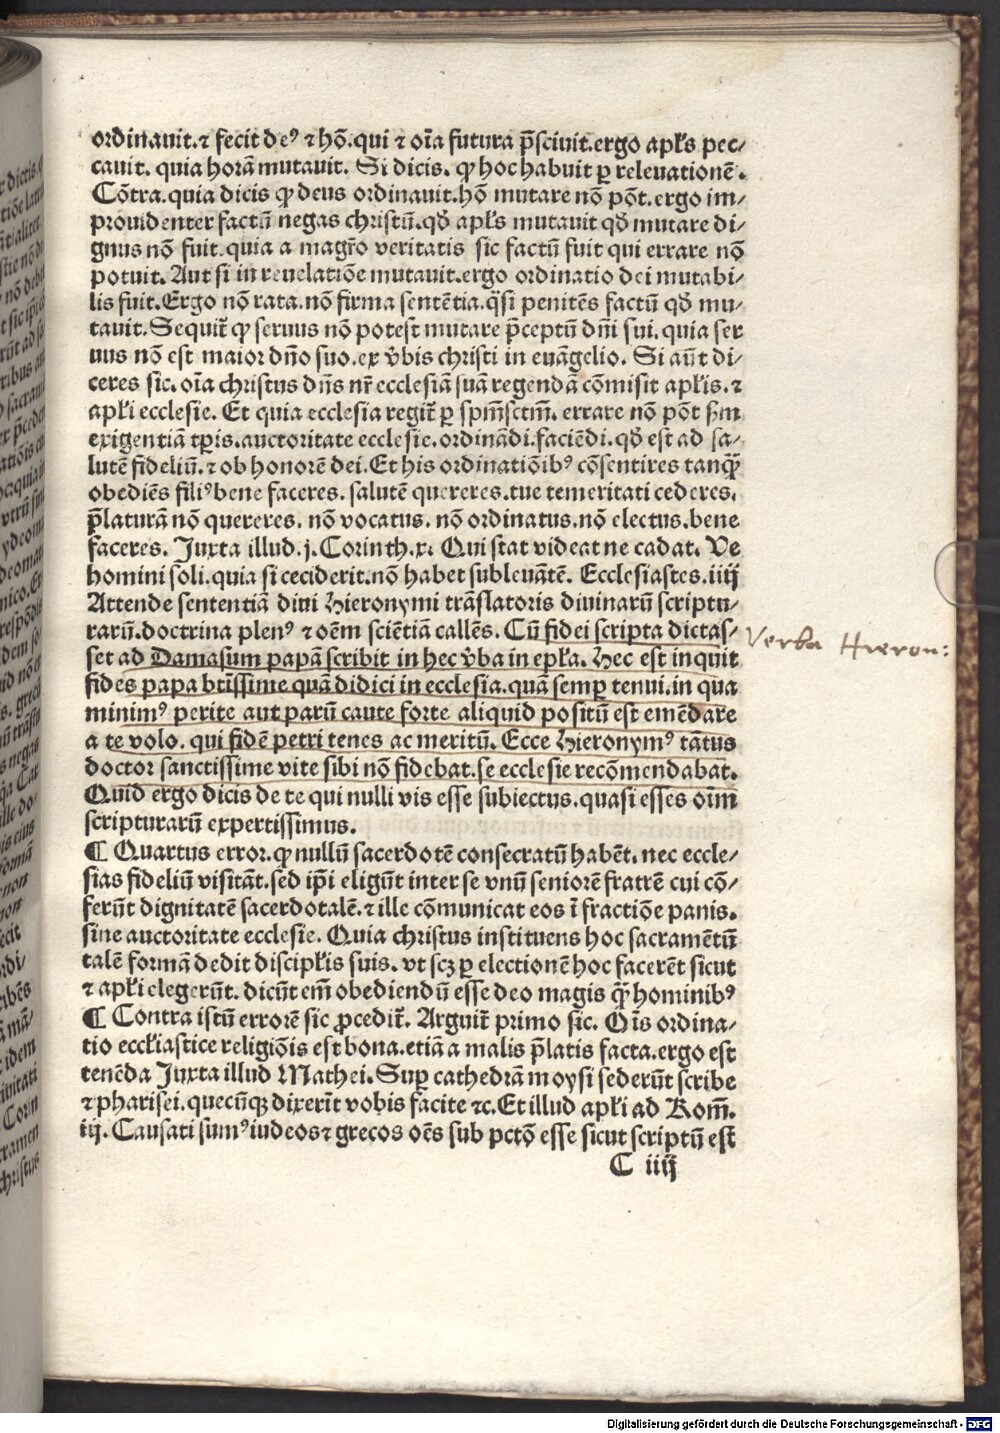 ordinauit.⁊ fecit deꝰ ⁊ hō.qui ⁊ oīa futura p̄sciuit.ergo apl̄s pec⸗
cauit. quia horā mutauit. Si dicis. ꝙ hoc habuit ꝑ releuationē.
Cōtra.quia dicis ꝙ deus ordinauit.hō mutare nō pōt.ergo im⸗
prouidenter factū negas christū.qđ apl̄s mutauit qđ mutare di⸗
gnus nō fuit.quia a magr̄o veritatis sic factū fuit qui errare nō
potuit. Aut si in reuelatiōe mutauit.ergo ordinatio dei mutabi⸗
lis fuit.Ergo nō rata.nō firma sentētia.q̄si penitēs factū qđ mu⸗
tauit.Sequit̄ ꝙ seruus nō potest mutare p̄ceptū dn̄i sui.quia ser
uus nō est maior dn̄o suo.ex v̄bis christi in euāgelio. Si aūt di⸗
ceres sic.oīa christus dn̄s nr̄ ecclesiā suā regendā cōmisit apl̄is.⁊
apl̄i ecclesie. Et quia ecclesia regit̄ ꝑ sp̄m̄sctm̄. errare nō pōt s̄m
exigentiā tp̄is.auctoritate ecclesie.ordinādi.faciēdi.qđ est ad sa⸗
lutē fideliū.⁊ ob honorē dei.Et his ordinatiōibꝰ cōsentires tanq̄ꝫ
obediēs filiꝰ bene faceres. salutē quereres.tue temeritati cederes.
p̄laturā nō quereres. nō vocatus. nō ordinatus.nō electus.bene
faceres. Juxta illud.j.Corinth.x. Qui stat videat ne cadat. Ve
homini soli.quia si ceciderit.nō habet subleuātē. Ecclesiastes.iiij
Attende sententiā diui Hieronymi trāslatoris diuinarū scriptu⸗
rarū.doctrina plenꝰ ⁊ oēm sciētiā callēs. Cū fidei scripta dictas⸗
set ad Damasum papā scribit in hec v̄ba in epl̄a. Hec est inquit
fides papa btīssime quā didici in ecclesia.quā semꝑ tenui.in qua
minimꝰ perite aut parū caute forte aliquid positū est emēdare
a te volo. qui fidē petri tenes ac meritū. Ecce Hieronymꝰ tātus
doctor sanctissime vite sibi nō fidebat.se ecclesie recōmendabat.
Quid ergo dicis de te qui nulli vis esse subiectus.quasi esses oīm
scripturarū expertissimus.
¶ Quartus error.ꝙ nullū sacerdotē consecratū habēt. nec eccle⸗
sias fideliū visitāt.sed ip̄i eligūt inter se vnū seniorē fratrē cui cō⸗
ferūt dignitatē sacerdotalē.⁊ ille cōmunicat eos ī fractiōe panis.
sine auctoritate ecclesie. Quia christus instituens hoc sacramētū
talē formā dedit discipl̄is suis. vt scꝫ ꝑ electionē hoc facerēt sicut
⁊ apl̄i elegerūt. dicūt em̄ obediendū esse deo magis q̄ꝫ hominibꝰ
¶ Contra istū errorē sic ꝓcedit̄. Arguit̄ primo sic. Oīs ordina⸗
tio eccl̄iastice religiōis est bona.etiā a malis p̄latis facta.ergo est
tenēda Juxta illud Mathei.Suꝑ cathedrā moysi sederūt scribe
⁊ pharisei.quecūqꝫ dixerīt vobis facite ⁊c.Et illud apl̄i ad Rom̄.
iij. Causati sumꝰ iudeos ⁊ grecos oēs sub pctō esse sicut scriptū est
C iiij
Verba Hieron:
Digitalisierung gefördert durch die Deutsche Forschungsgemeinschaft - DFG